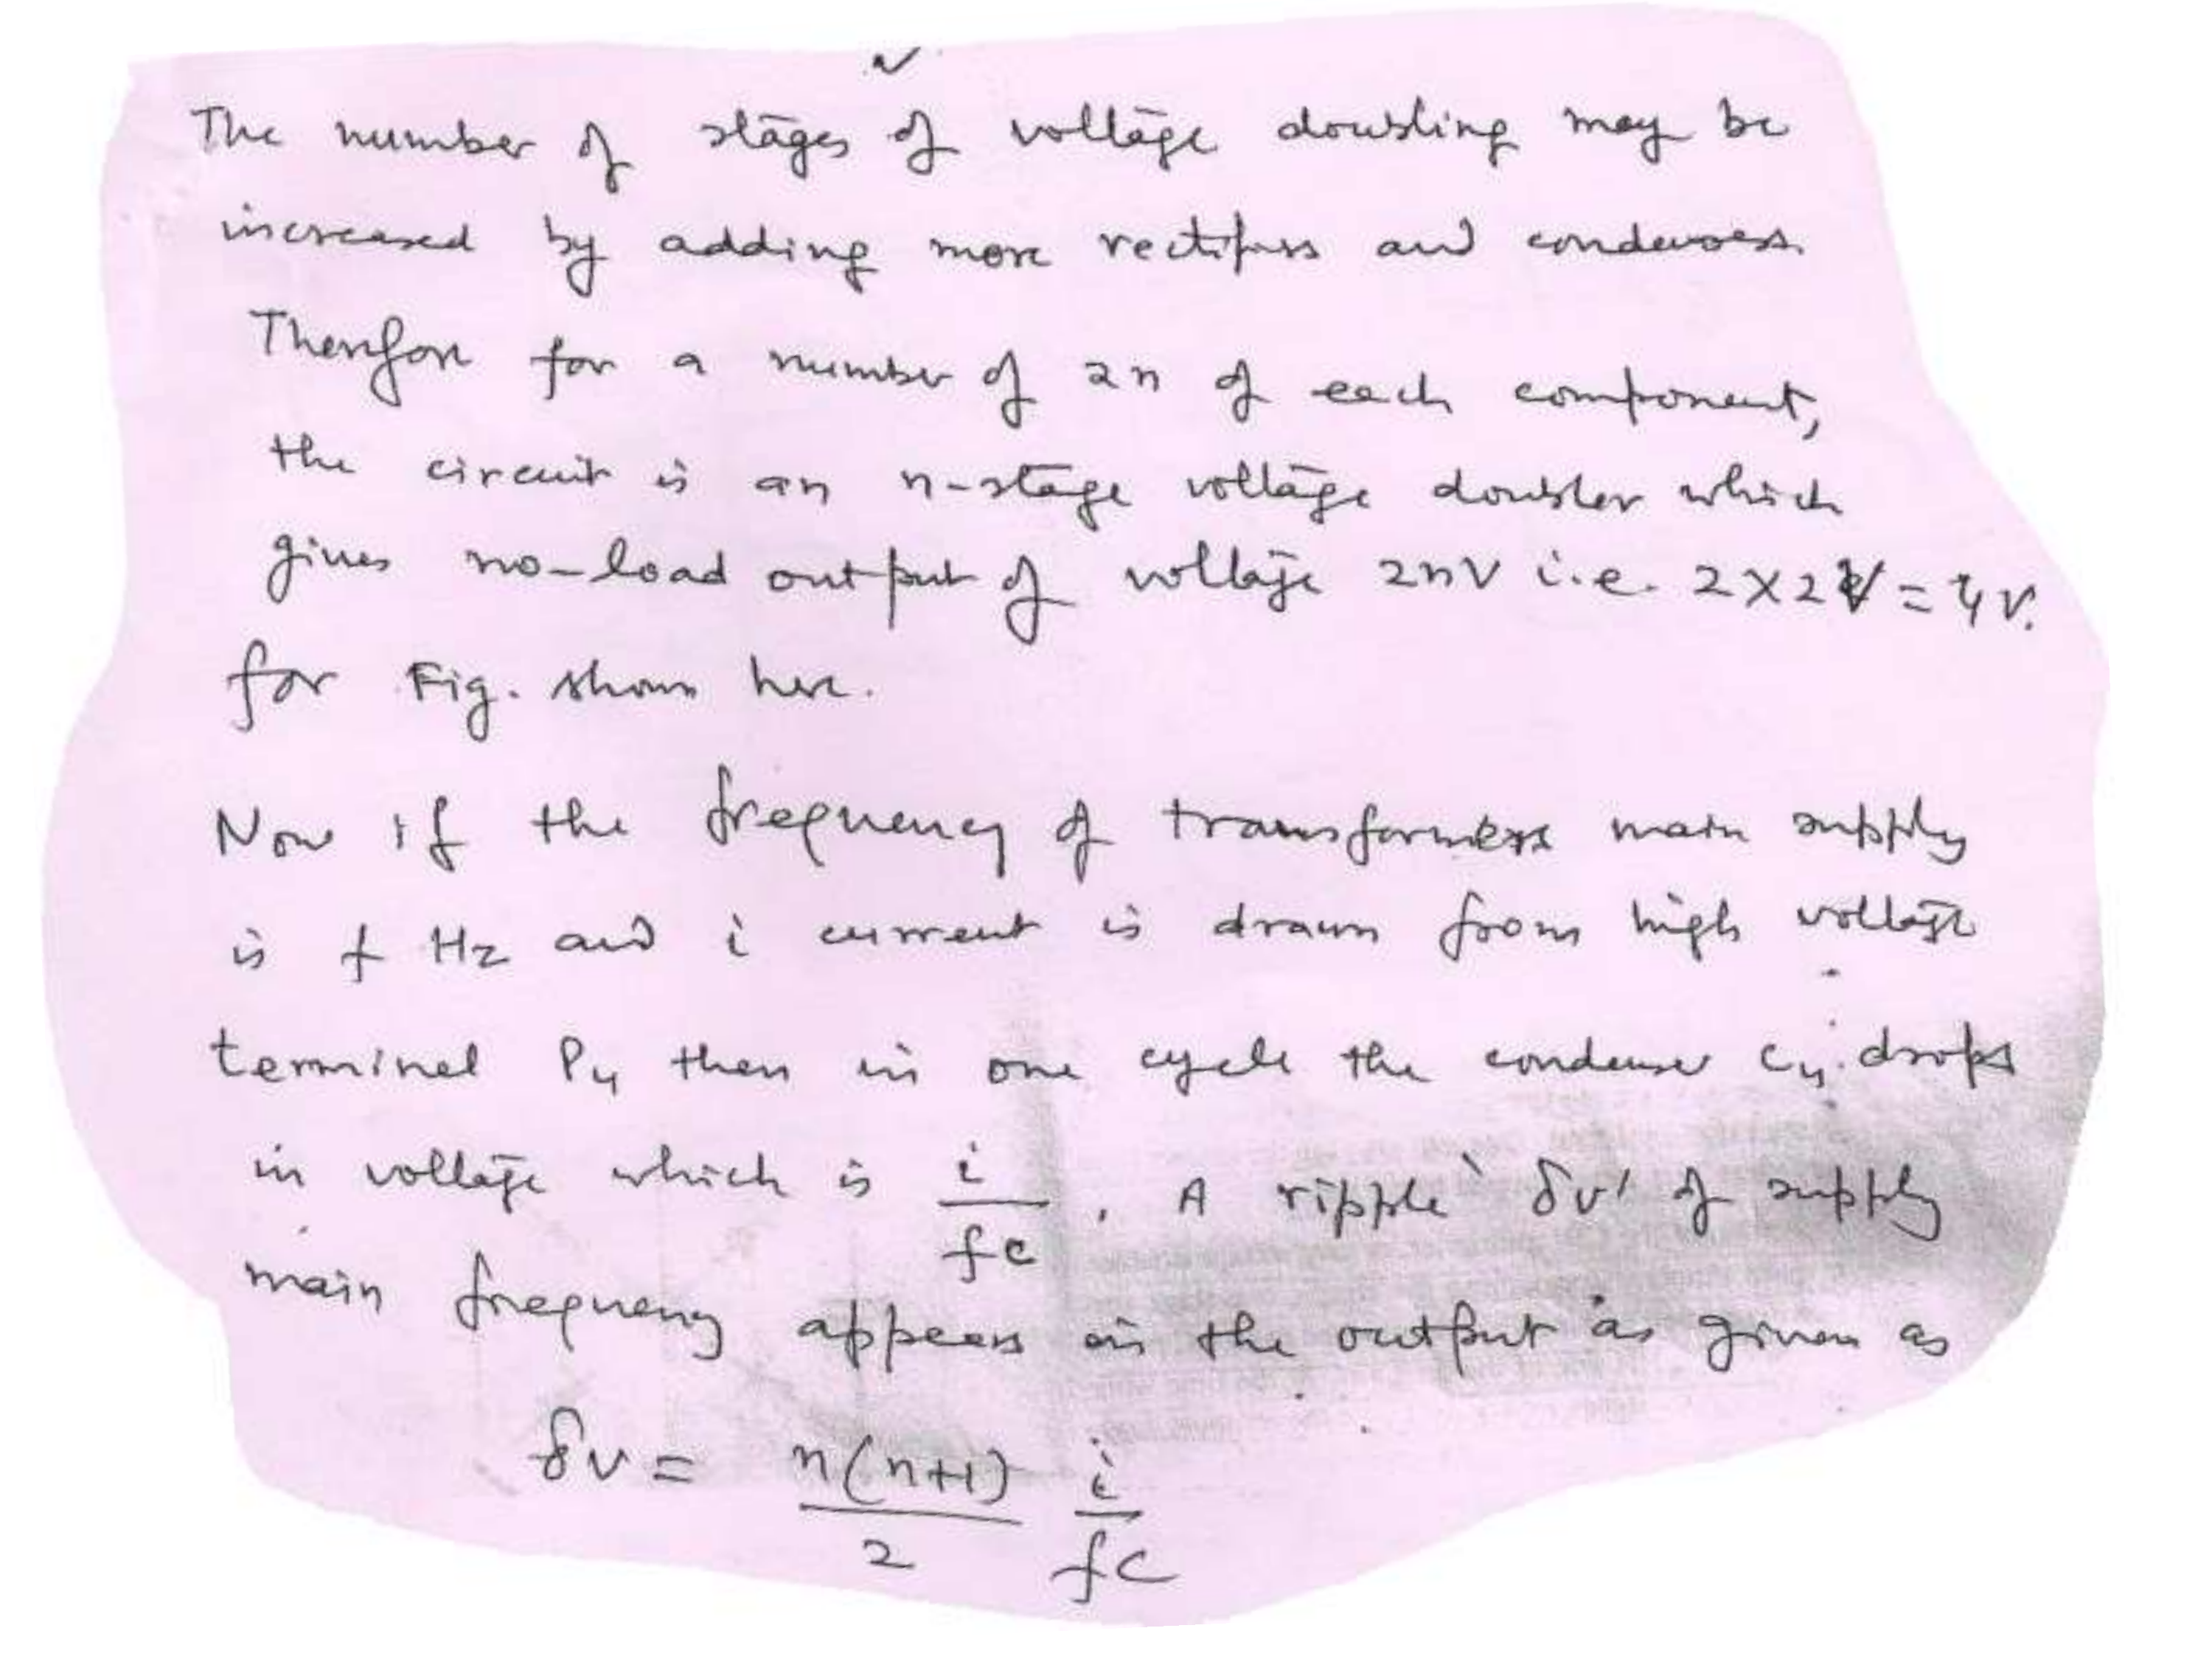 The number of stages of voltage doubling may be
increased by adding more rectifiers and condensers.
Therefore for a number of 2n of each component,
the circuit is an n-stage voltage doubler which
gives no-load output of voltage 2nV i.e. 2×2V = 4V.
for Fig. shown here.
Now if the frequency of transformers main supply
is f Hz and i current is drawn from high voltage
terminal P₄ then in one cycle the condenser C₄ drops
in voltage which is i/fc. A ripple 'δv' of supply
main frequency appears in the output as given as
δv = n(n+1)/2 i/fC